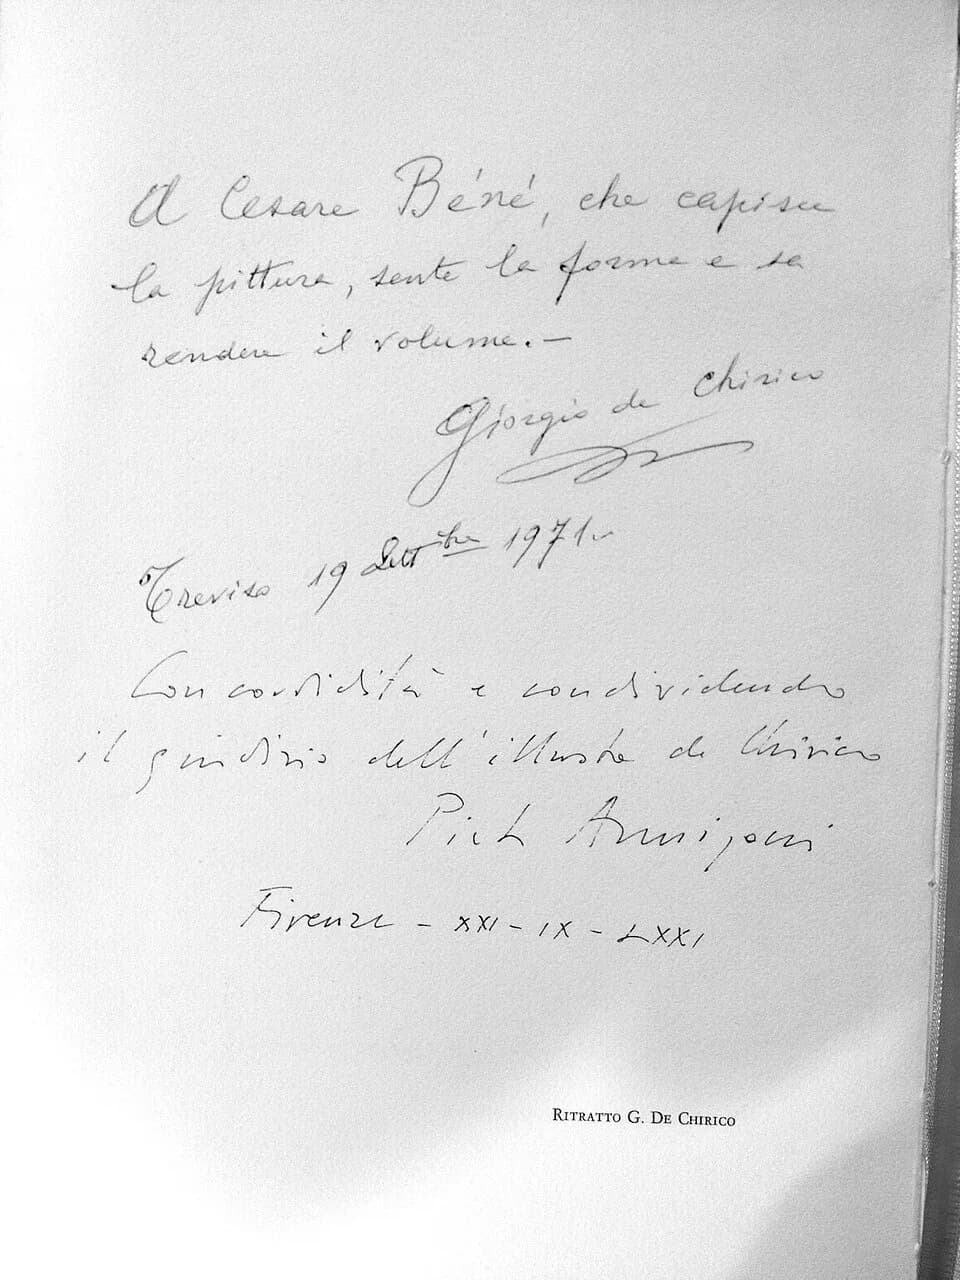 A Cesare Béné, che capisce
la pittura, sente la forma e sa
rendere il volume. —
Giorgio de Chirico
Treviso 19 Settibre 1971
Con cordidità e condividendo
il giudizio dell'illustre de Chirico
Pietro Annigoni
Firenze - XXI - IX - LXXI
RITRATTO G. DE CHIRICO